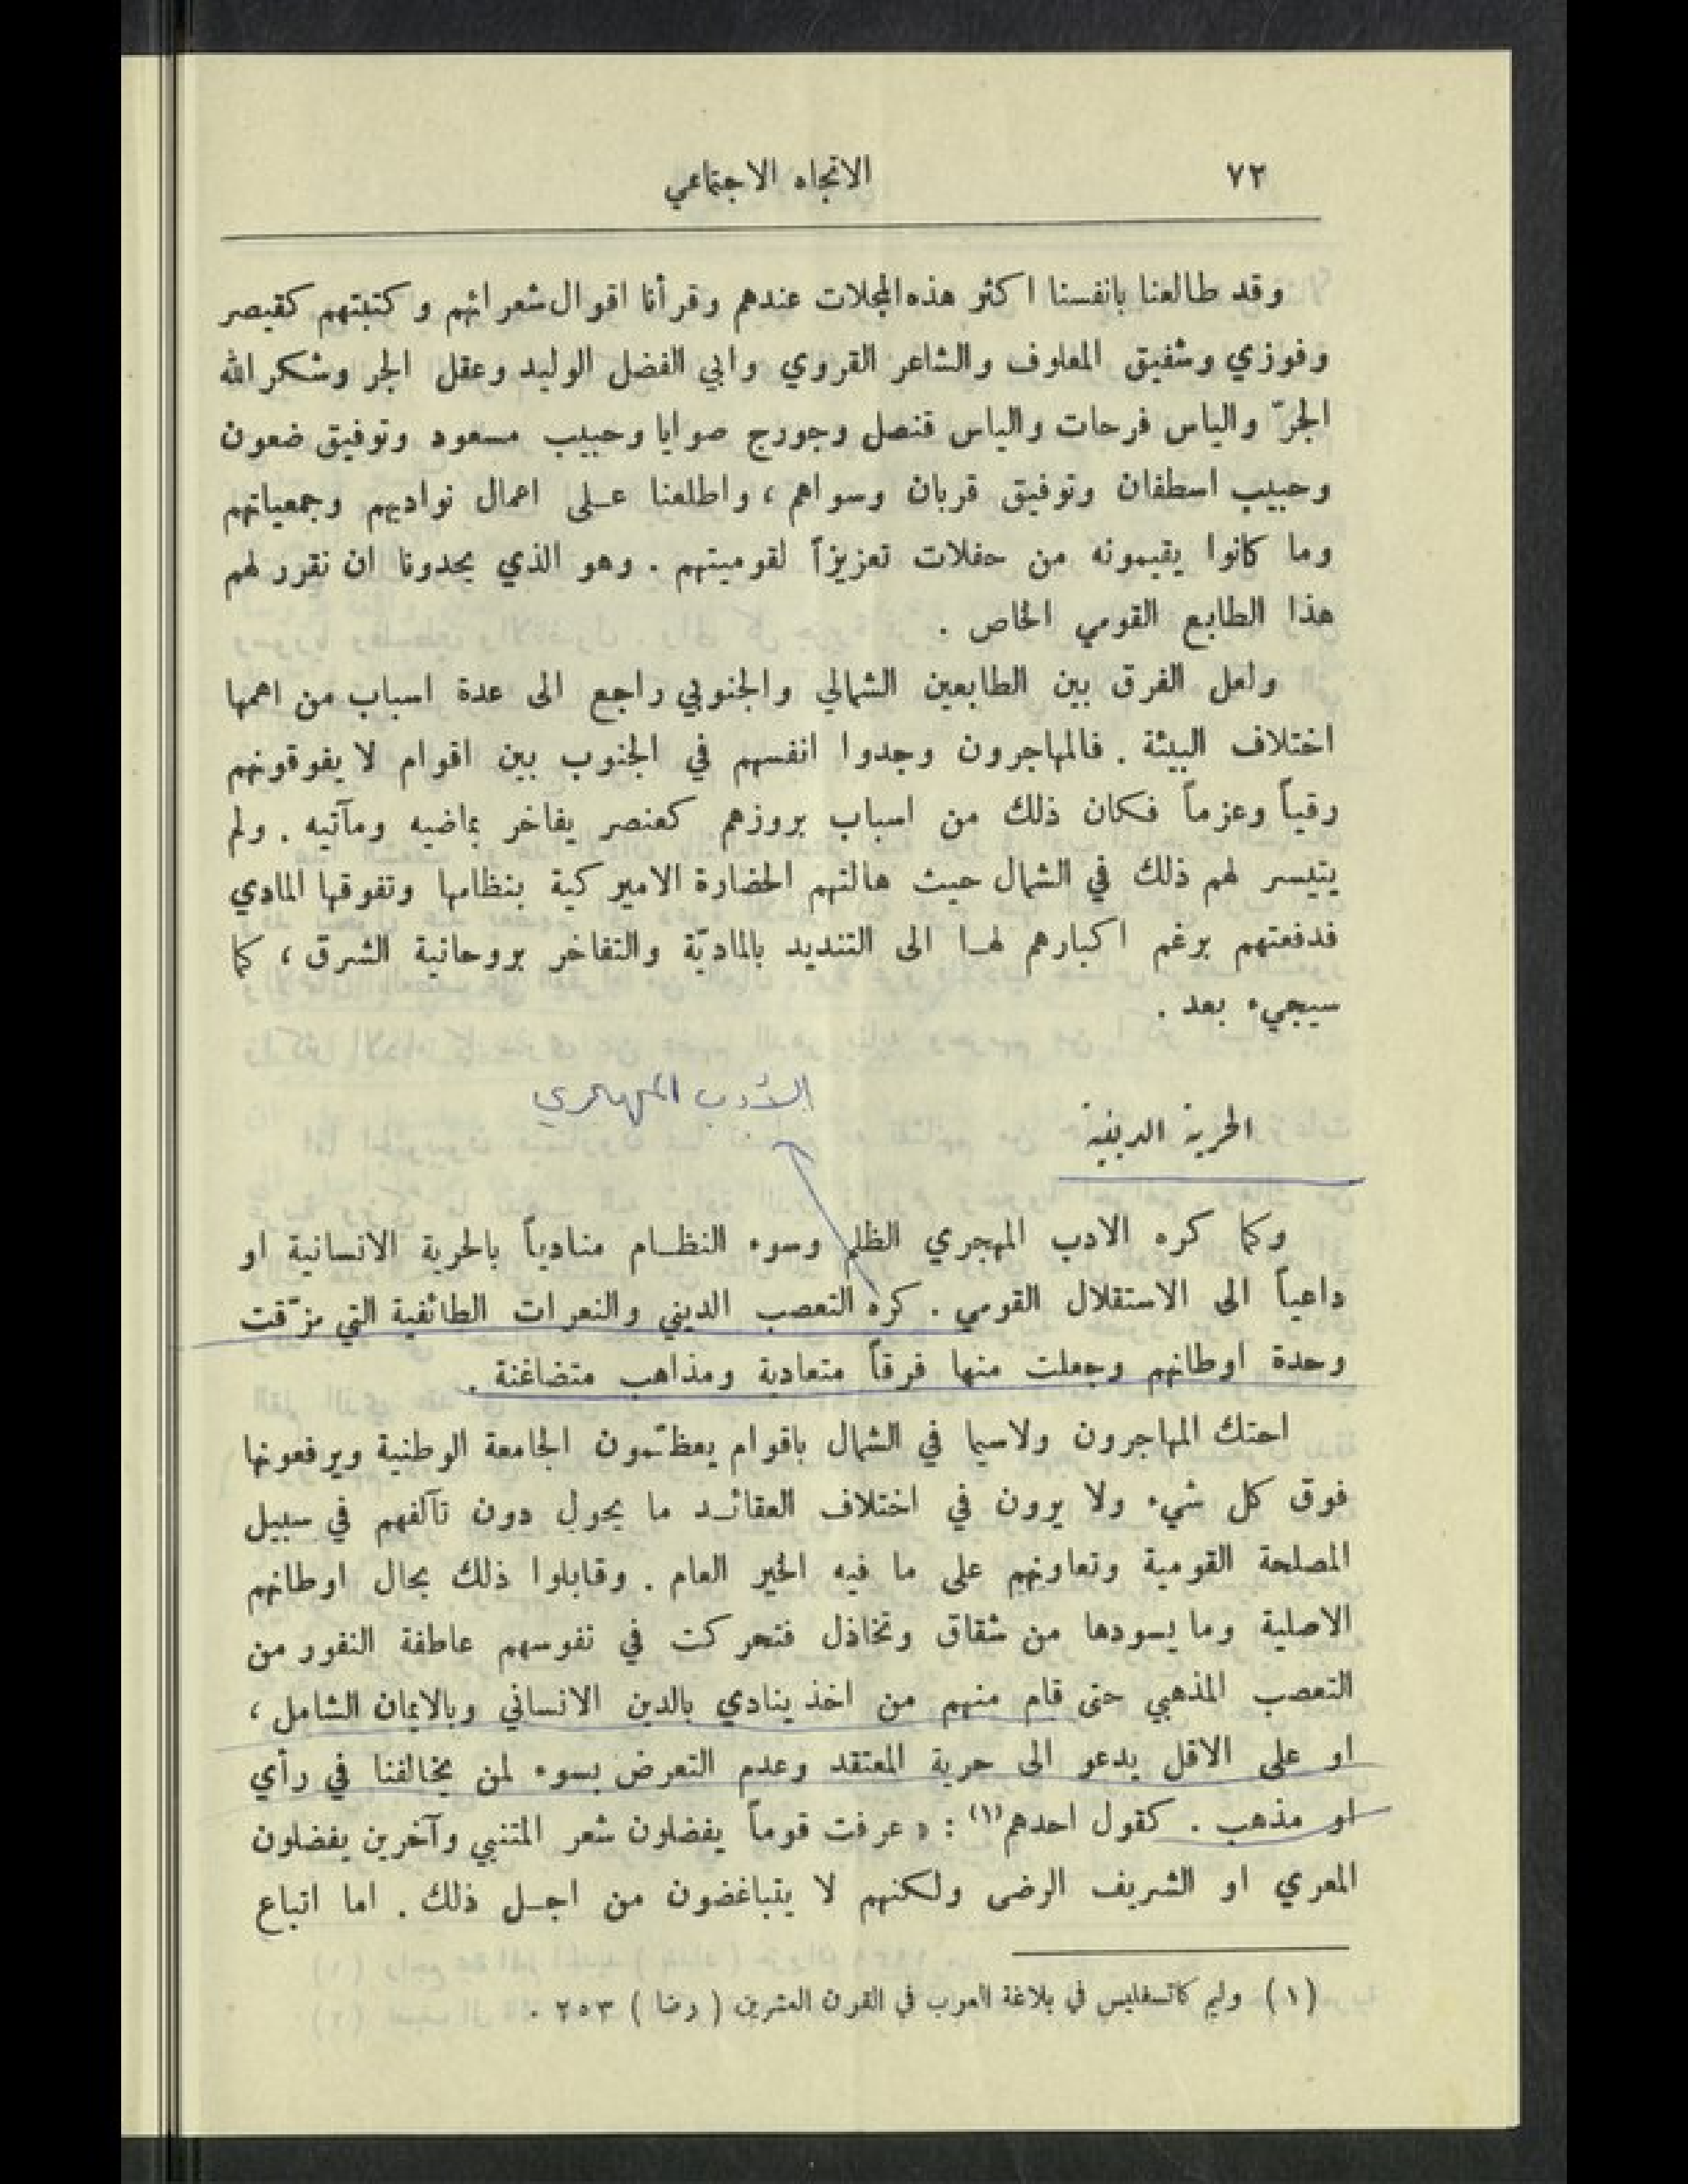 ٧٢
الاتجاه الاجتماعي
وقد طالعنا بانفسنا اكثر هذه المجلات عندهم وقرأنا اقوال شعرائهم وكتبتهم كقيصر
وفوزي وشفيق المعلوف والشاعر القروي وابي الفضل الوليد وعقل الجر وشكرالله
الجرّ والياس فرحات والياس قنصل وجورج صوايا وحبيب مسعود وتوفيق ضعون
وحبيب اسطفان وتوفيق قربان وسواهم ، واطلعنا عـلى اعمال نواديهم وجمعياتهم
وما كانوا يقيمونه من حفلات تعزيزاً لقوميتهم . وهو الذي يحدونا ان نقرر لهم
هذا الطابع القومي الخاص .
ولعل الفرق بين الطابعين الشمالي والجنوبي راجع الى عدة اسباب من اهمها
اختلاف البيئة . فالمهاجرون وجدوا انفسهم في الجنوب بين اقوام لا يفوقونهم
رقياً وعزماً فكان ذلك من اسباب بروزهم كعنصر يفاخر بماضيه ومآتيه . ولم
يتيسر لهم ذلك في الشمال حيث هالتهم الحضارة الاميركية بنظامها وتفوقها المادي
فدفعتهم برغم اكبارهم لهـا الى التنديد بالماديّة والتفاخر بروحانية الشرق ، كما
سيجيء بعد .
الأدب المهجري
الحرية الدينية
وكما كره الادب المهجري الظلم وسوء النظـام منادياً بالحرية الانسانية او
داعياً الى الاستقلال القومي . كره التعصب الديني والنعرات الطائفية التي مزّقت
وحدة اوطانهم وجعلت منها فرقاً متعادية ومذاهب متضاغنة .
احتك المهاجرون ولاسيما في الشمال باقوام يعظّمون الجامعة الوطنية ويرفعونها
فوق كل شيء ولا يرون في اختلاف العقائـد ما يحول دون تآلفهم في سبيل
المصلحة القومية وتعاونهم على ما فيه الخير العام . وقابلوا ذلك بحال اوطانهم
الاصلية وما يسودها من شقاق وتخاذل فتحركت في نفوسهم عاطفة النفور من
التعصب المذهبي حتى قام منهم من اخذ ينادي بالدين الانساني وبالايمان الشامل ،
او على الاقل يدعو الى حرية المعتقد وعدم التعرض بسوء لمن يخالفنا في رأي
او مذهب . كقول احدهم (١) : « عرفت قوماً يفضلون شعر المتنبي وآخرين يفضلون
المعري او الشريف الرضى ولكنهم لا يتباغضون من اجـل ذلك . اما اتباع
(١) وليم كاتسفليس في بلاغة العرب في القرن العشرين ( رضا ) ٢٥٣ .